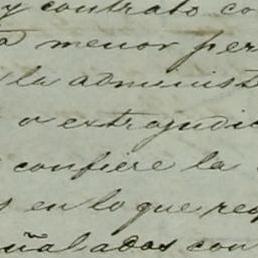 y contrato co
a menor per
la administ
o extrajudic
confiere la
s en lo que resp
ñalados con